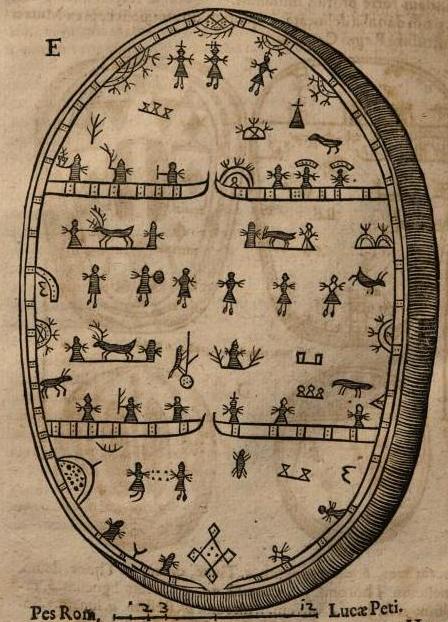 E
Pes Rom, 1 2 3 12 Lucæ Peti.